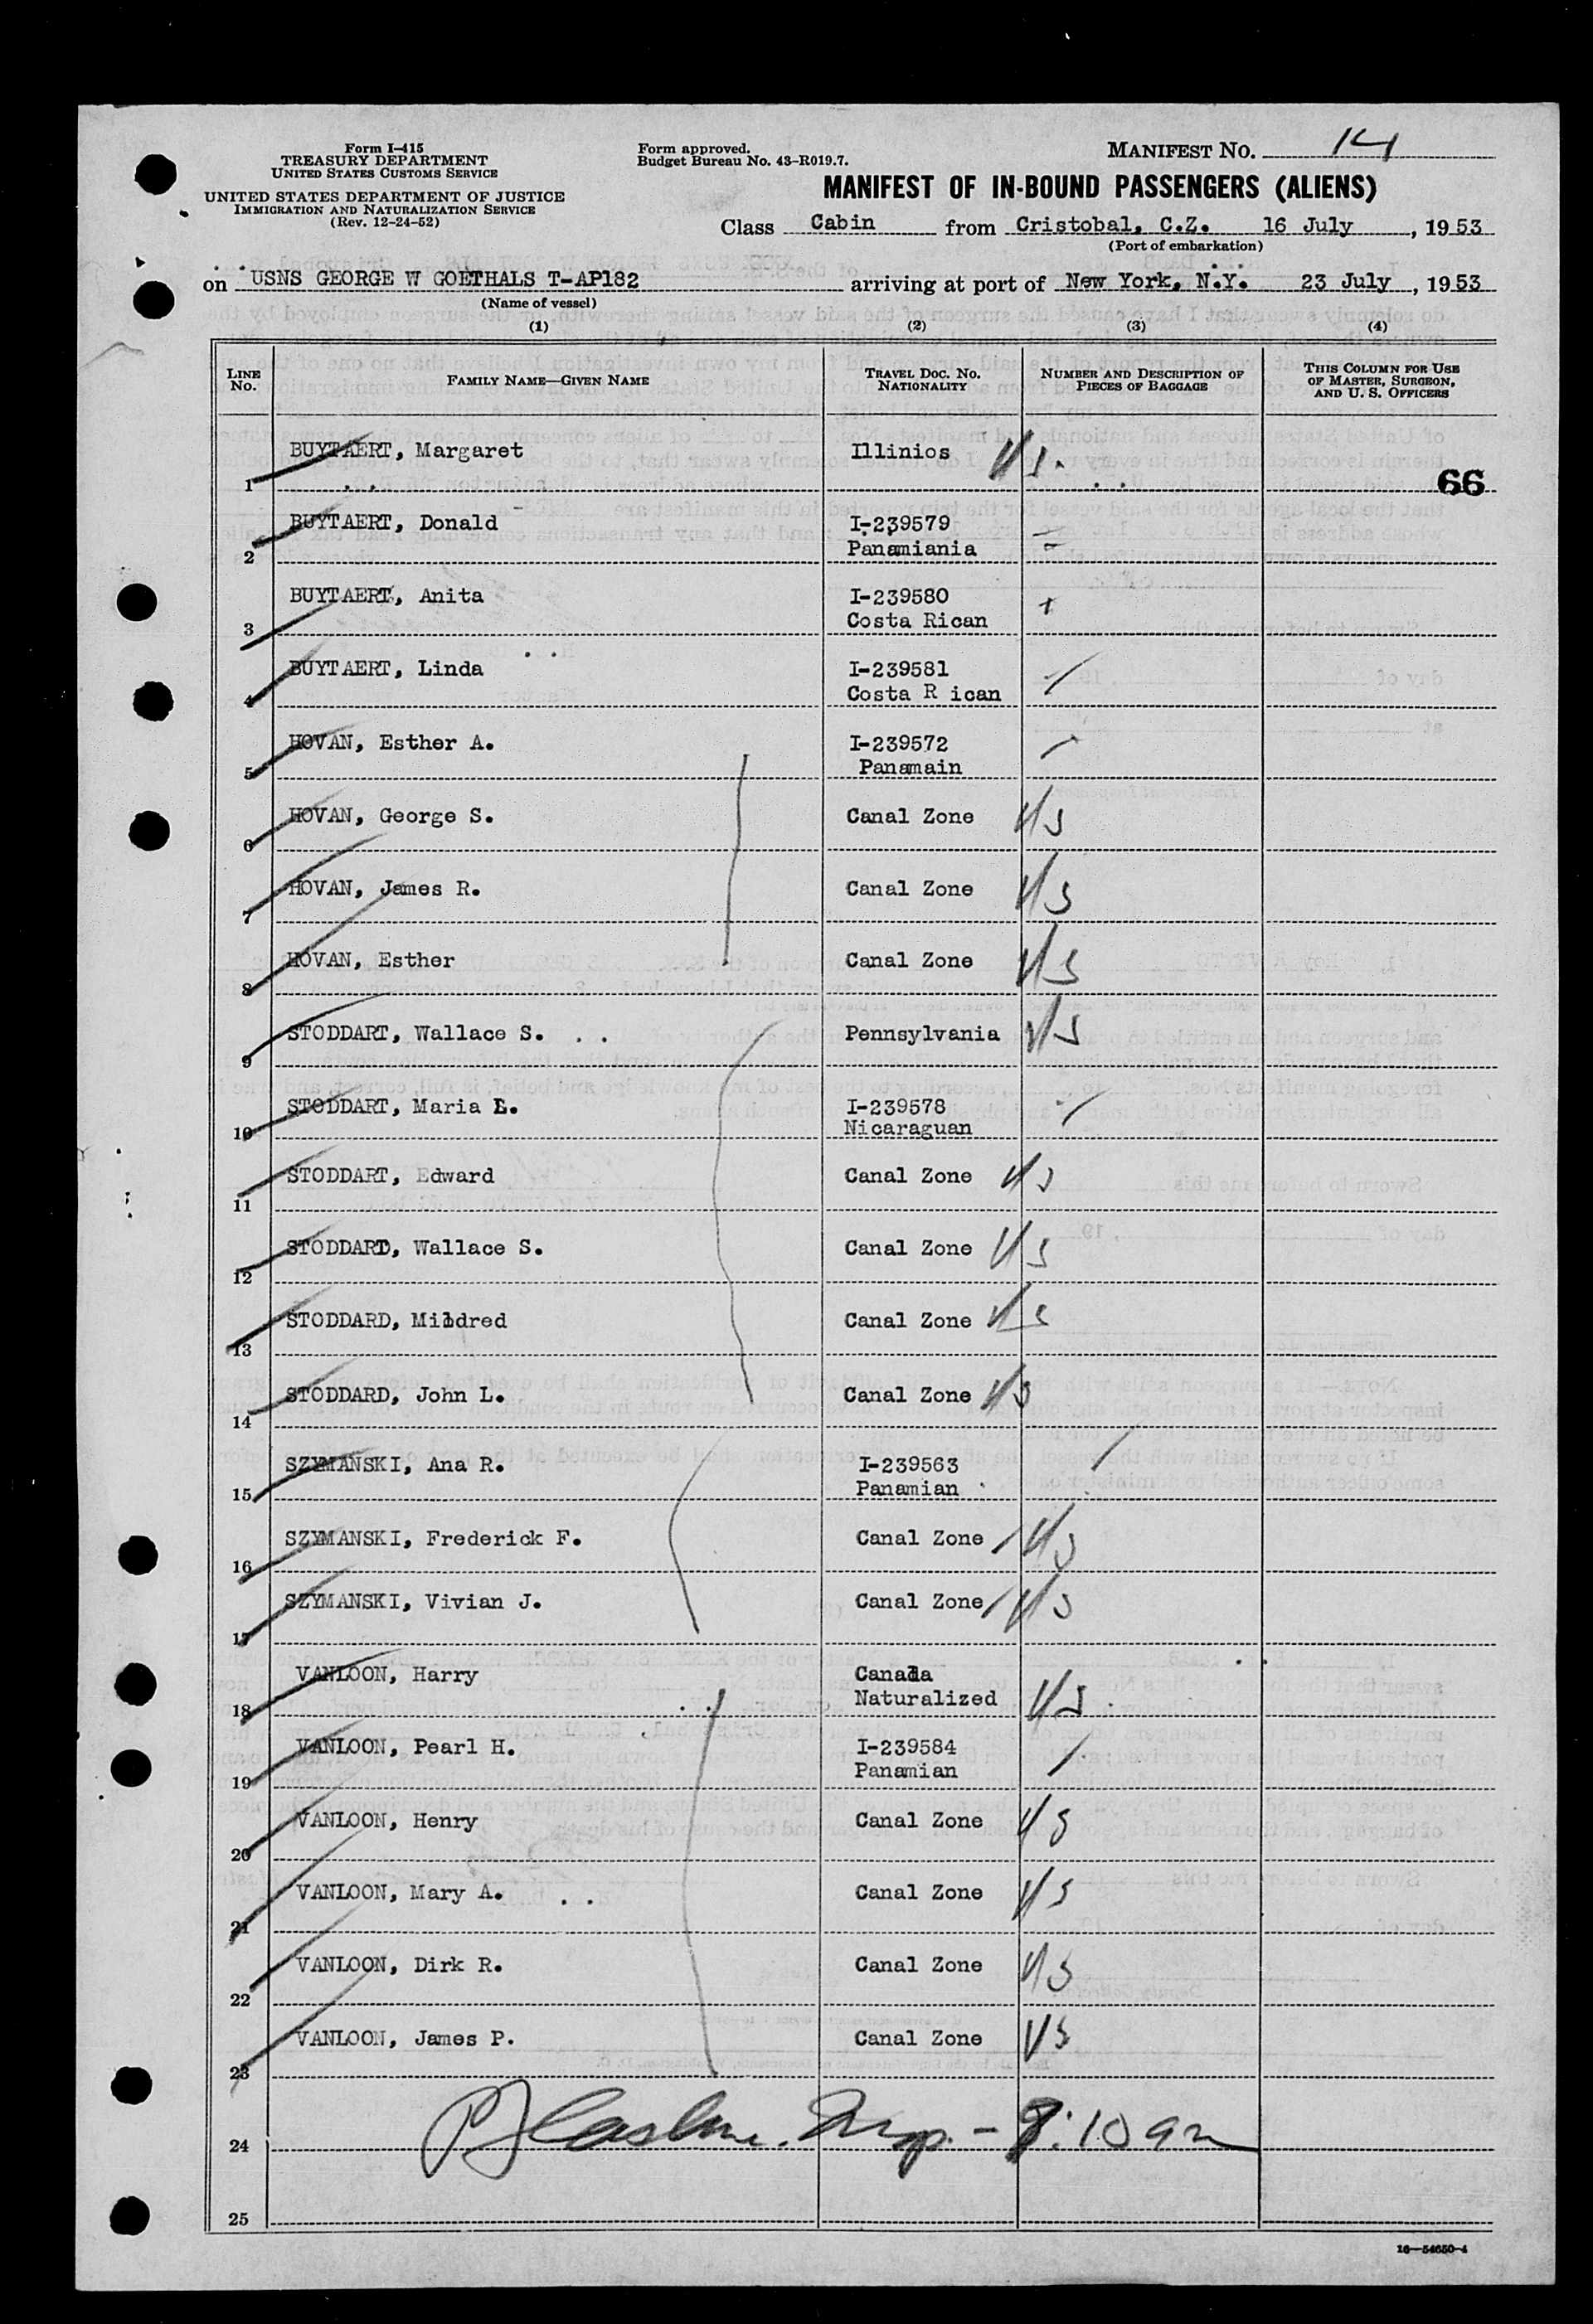 Form I-415
TREASURY DEPARTMENT
UNITED STATES CUSTOMS SERVICE
UNITED STATES DEPARTMENT OF JUSTICE
IMMIGRATION AND NATURALIZATION SERVICE
(Rev. 12-24-52)
Form approved.
Budget Bureau No. 43-R019.7.
MANIFEST NO. 14
MANIFEST OF IN-BOUND PASSENGERS (ALIENS)
Class Cabin from Cristobal, C.Z. 16 July, 1953
(Port of embarkation)
on USNS GEORGE W GOETHALS T-AP182 arriving at port of New York, N.Y. 23 July, 1953
(Name of vessel)
(1) (2) (3) (4)
LINE NO. FAMILY NAME—GIVEN NAME TRAVEL DOC. NO. NATIONALITY NUMBER AND DESCRIPTION OF PIECES OF BAGGAGE THIS COLUMN FOR USE OF MASTER, SURGEON, AND U. S. OFFICERS
1 BUYTAERT, Margaret Illinios US 66
2 BUYTAERT, Donald I-239579 Panamiania
3 BUYTAERT, Anita I-239580 Costa Rican
4 BUYTAERT, Linda I-239581 Costa R ican
5 HOVAN, Esther A. I-239572 Panamain
6 HOVAN, George S. Canal Zone US
7 HOVAN, James R. Canal Zone US
8 HOVAN, Esther Canal Zone US
9 STODDART, Wallace S. Pennsylvania US
10 STODDART, Maria L. I-239578 Nicaraguan
11 STODDART, Edward Canal Zone US
12 STODDARD, Wallace S. Canal Zone US
13 STODDARD, Mildred Canal Zone US
14 STODDARD, John L. Canal Zone US
15 SZYMANSKI, Ana R. I-239563 Panamian
16 SZYMANSKI, Frederick F. Canal Zone US
17 SZYMANSKI, Vivian J. Canal Zone US
18 VANLOON, Harry Canada Naturalized US
19 VANLOON, Pearl H. I-239584 Panamian
20 VANLOON, Henry Canal Zone US
21 VANLOON, Mary A. Canal Zone US
22 VANLOON, Dirk R. Canal Zone US
23 VANLOON, James P. Canal Zone US
24 Insp. - 8:10 am
25
16—54650-4